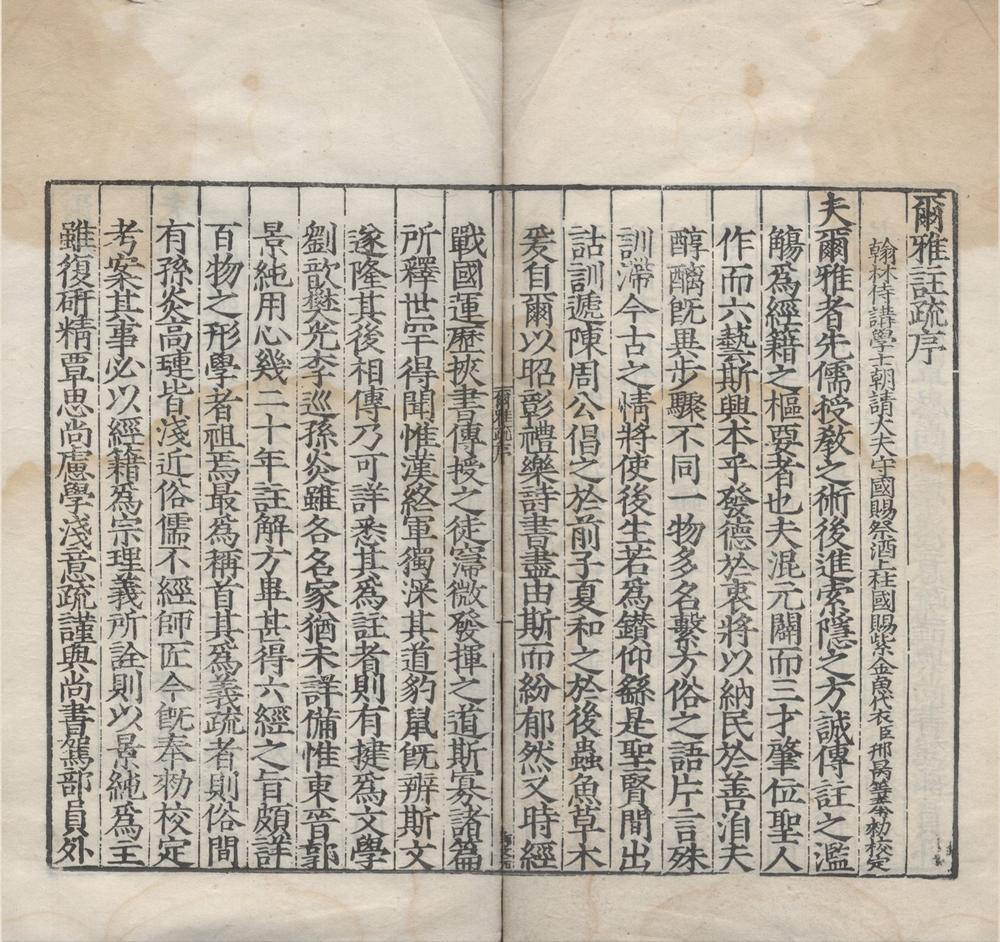 爾雅註疏序
翰林侍講學士朝請大夫守國子祭酒上柱國賜紫金魚袋臣邢昺等奉勑校定
夫爾雅者先儒授教之術後進索隱之方誠傳註之濫
觴爲經籍之樞要者也夫混元闢而三才肇位聖人
作而六藝斯興本乎發德於衷將以納民於善洎夫
醇醨旣異步驟不同一物多名繫方俗之語片言殊
訓滯今古之情將使後生若爲鑽仰繇是聖賢間出
詁訓遞陳周公倡之於前子夏和之於後蟲魚草木
爰自爾以昭彰禮樂詩書盡由斯而紛郁然又時經
爾雅疏序
一
戰國運歷挾書傳授之徒寖微發揮之道斯寡諸篇
所釋世罕得聞惟漢終軍獨深其道豹鼠旣辨斯文
遂隆其後相傳乃可詳悉其爲註者則有犍爲文學
劉歆樊光李巡孫炎雖各名家猶未詳備惟東晉郭
景純用心幾二十年註解方畢甚得六經之旨頗詳
百物之形學者祖焉最爲稱首其爲義疏者則俗間
有孫炎高璉皆淺近俗儒不經師匠今旣奉勑校定
考案其事必以經籍爲宗理義所詮則以景純爲主
雖復研精覃思尚慮學淺意疏謹與尚書駕部員外